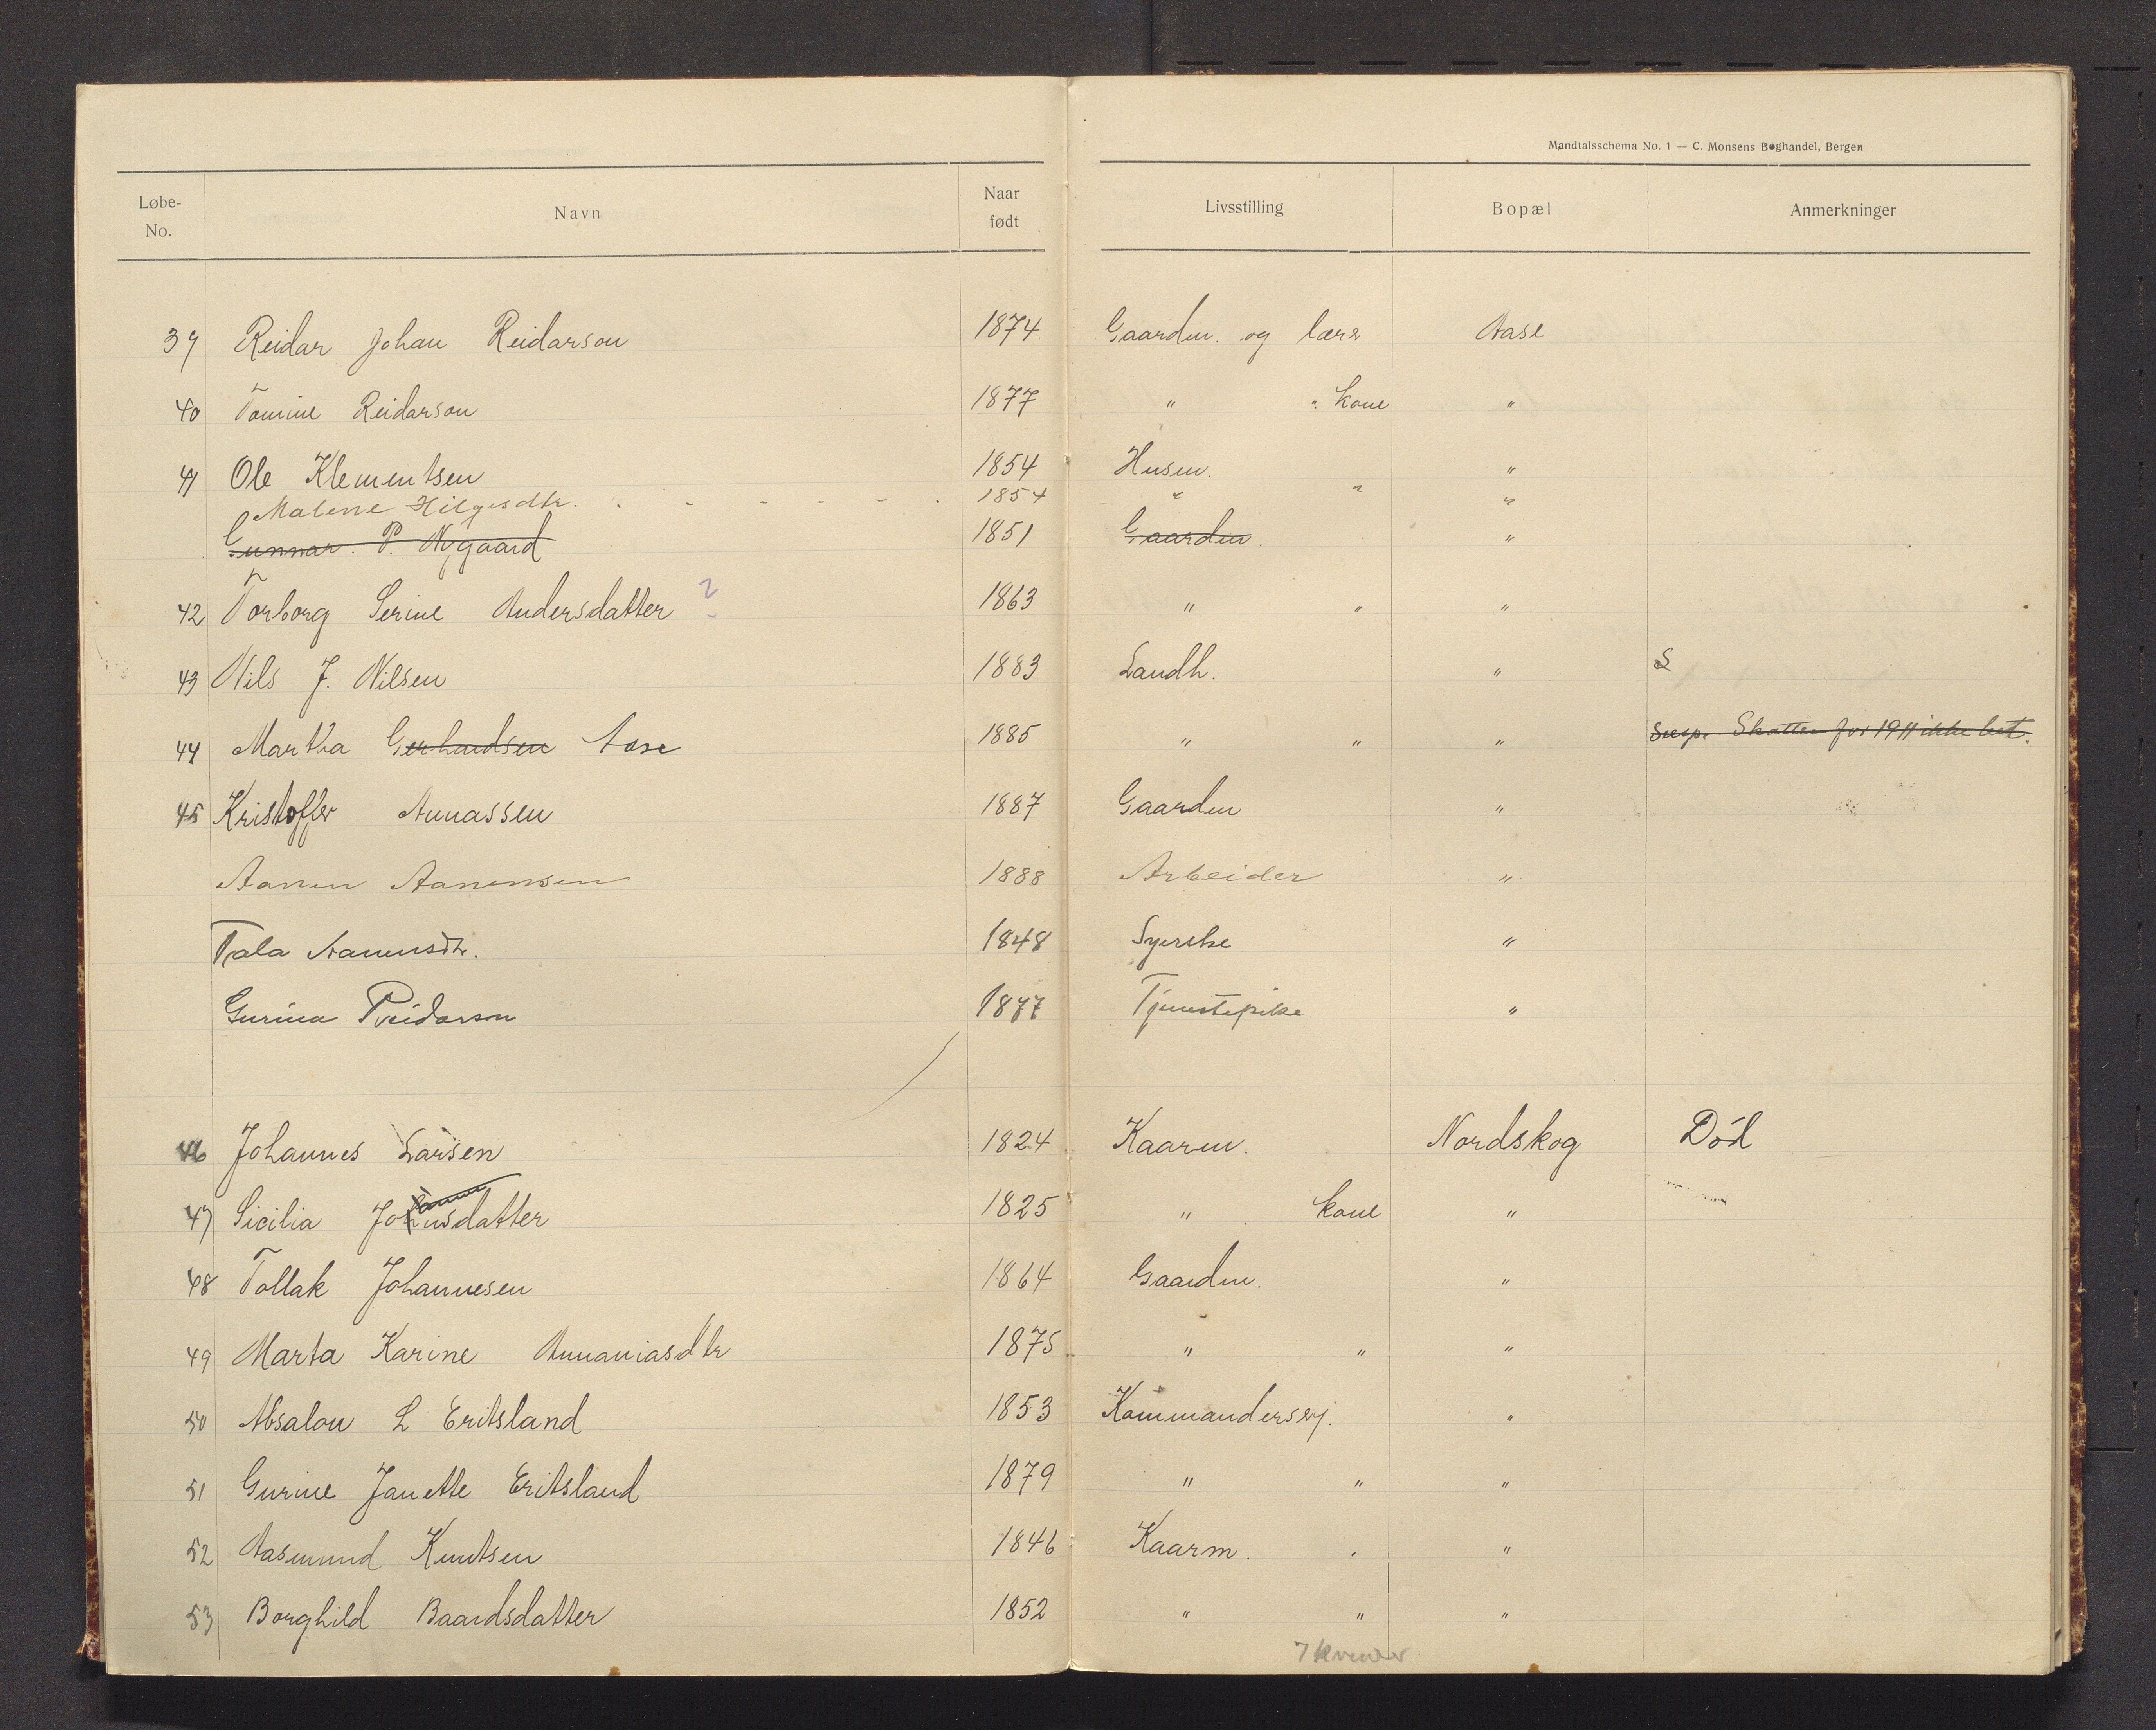 Mandtalsschema No. 1 — C. Monsens Boghandel, Bergen
Løbe-No. Navn Naar født Livsstilling Bopæl Anmerkninger
39 Reidar Johan Reidarson 1874 Gaardm. og lærer Aase
40 Tomine Reidarson 1877 " " kone "
41 Ole Klementsen 1854 Husm. "
Malene Hilgesdtr. 1854 " " "
Gunnar P. Nygaard 1851 Gaardm. "
42 Torborg Serine Andersdatter ? 1863 " " "
43 Nils J. Nilsen 1883 Landh. " S
44 Martha Gerhardsen Aase 1885 " " " Susp. Skatten for 1911 ikke bet.
45 Kristoffer Annassen 1887 Gaardm "
Aanen Aanensen 1888 Arbeider "
Tala Aanensdtr. 1848 Syerske "
Gurina Reidarson 1877 Tjenestepike "
46 Johannes Larsen 1824 Kaarm. Nordskog Død
47 Sicilia datter 1825 " kone "
48 Tollak Johannesen 1864 Gaardm. "
49 Marta Karine Annaniasdtr 1875 " " "
50 Absalon L Eritsland 1853 Kommanderserj. "
51 Gurine Janette Eritsland 1879 " " "
52 Aasmund Knutsen 1846 Kaarm. "
53 Borghild Baardsdatter 1852 " " "
7 kvinder